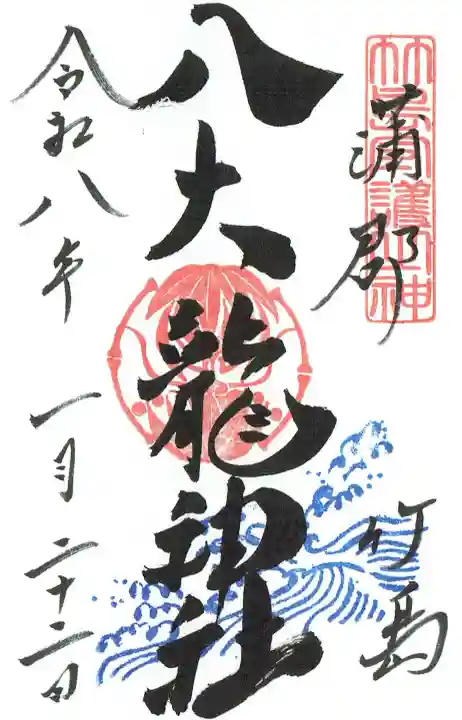 蒲郡
竹島
竹島守護神
八大龍神社
令和八年 一月二十二日